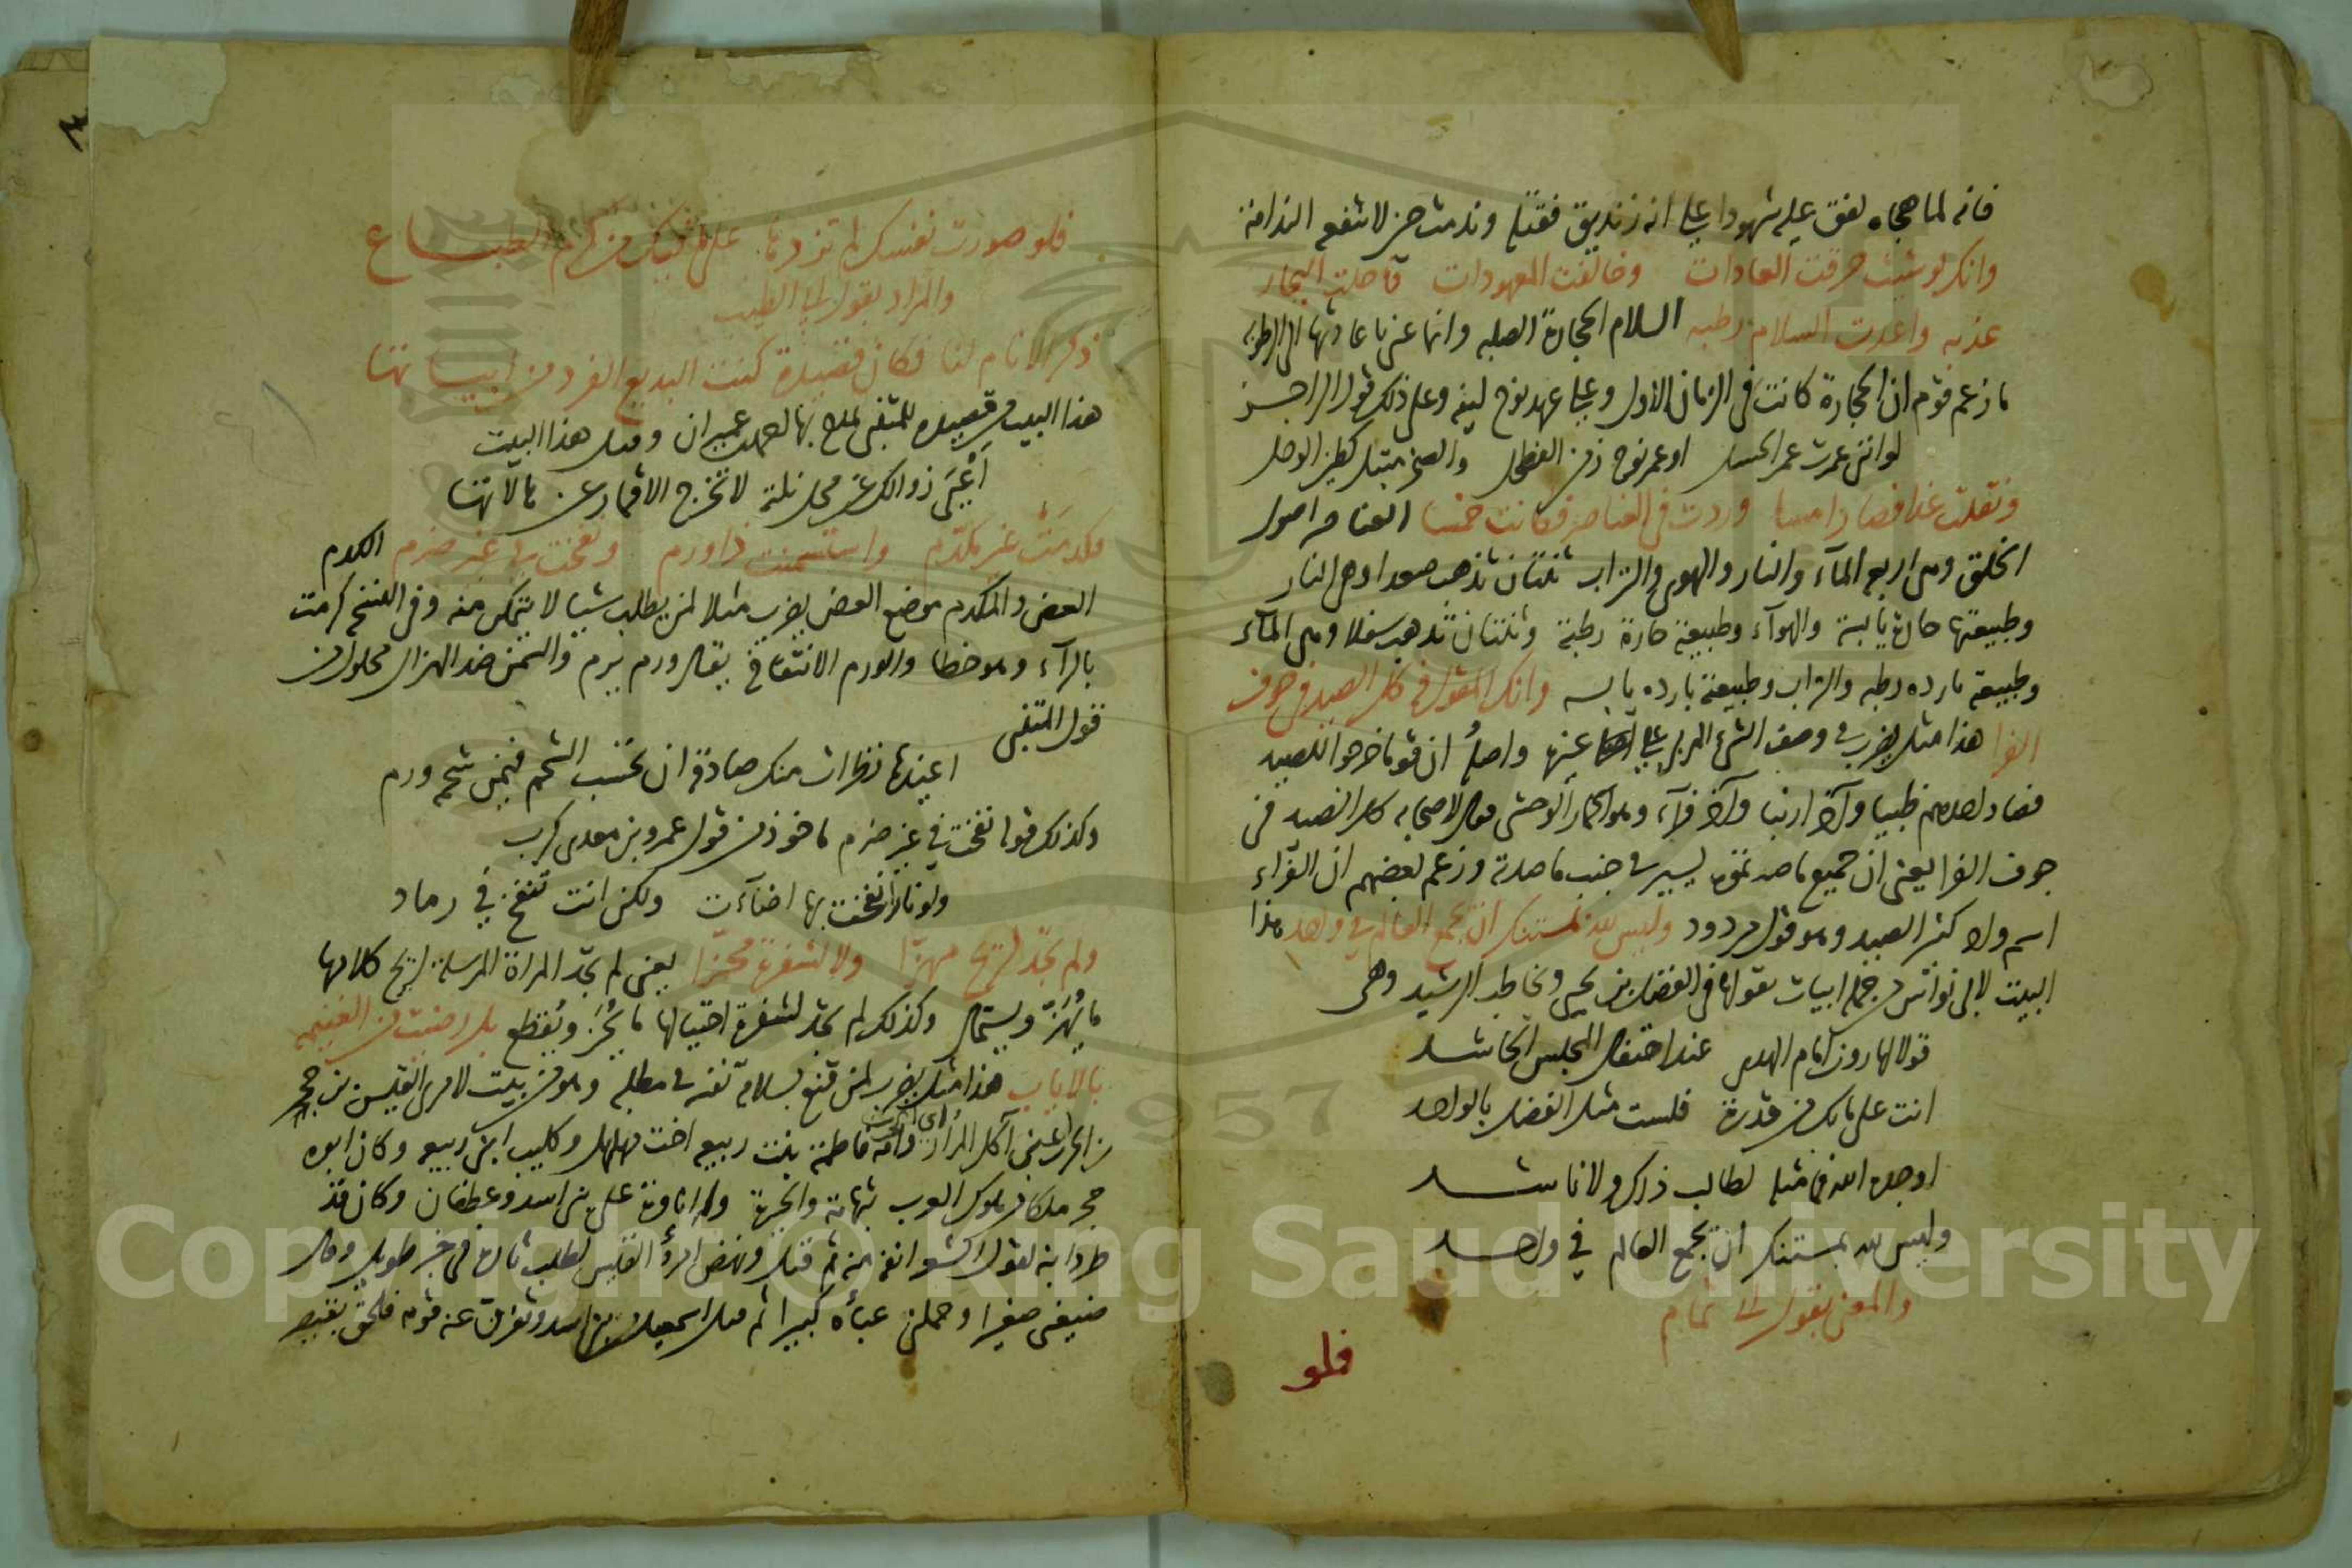 فانه لما هجاه لفق عليه شهودا على انه زنديق فقتله وندمت حين لا تنفع الندامة
وانك لو شئت خرقت العادات وخالفت المعهودات فاحلت البحار
عذبه واعدت السلام رطبه السلام الحجارة الصلبه وانما عنى باعادتها الى الرطوبة
ما زعم قوم ان الحجارة كانت في الزمان الاول وعلى عهد نوح لينه وعلى ذلك قول الراجز
لو انني عمرت عمر الحسل او عمر نوح زمن الفطحل والصخر مبتل كطين الوحل
ونقلت غدا فصار امسا وزدت في العناصر فكانت خمسا العناصر اصول
الخلق وهي اربع المآء والنار والهوى والتراب ثنتان تذهب صعدا وهي النار
وطبيعتها حارة يابسة والهوآء وطبيعته حارة رطبة وثنتان تذهب سفلا وهي المآء
وطبيعته بارده رطبه والتراب وطبيعته بارده يابسه وانك المقول في كل الصيد في جوف
الفرا هذا مثل يضرب في وصف الشيء المربي على غيره واصله ان قوما خرجوا للصيد
فصاد احدهم ظبيا وآخر ارنبا وآخر فرآء وهو الحمار الوحشي فقال لاصحابه كل الصيد في
جوف الفرا يعني ان جميع ما صدتموه يسير في جنب ما صدته وزعم بعضهم ان الفرآء
اسم واد كثير الصيد وهو قول مردود وليس لله بمستنكر ان يجمع العالم في واحد هذا
البيت لابي نواس من جملة ابيات يقولها في الفضل بن يحيى ويخاطب الرشيد وهي
قولا لهارون امام الهدى عند احتفال المجلس الحاشد
انت على ما بك من قدرة فلست مثل الفضل بالواجد
اوجده الله فما مثله لطالب ذاك ولا ناشد
وليس لله بمستنكر ان يجمع العالم في واحد
والمعنى بقول ابي تمام
فلو
فلو صورت نفسك لم تزدها على ما فيك من كرم الطباع
والمراد بقول ابي الطيب
ذكر الانام لنا فكان قصيدة كنت البديع الفرد من ابياتها
هذا البيت من قصيده للمتنبي يمدح بها احمد بن عمران وقبل هذا البيت
اعيى زوالك عن محل نلته لا تخرج الاقمار عن هالاتها
فكدمت غير مكدم واستسمنت ذا ورم ونفخت في غير ضرم الكدم
العض والمكدم موضع العض يضرب مثلا لمن يطلب شيا لا يتمكن منه وفي النسخ كرمت
بالرآء وهو خطا والورم الانتفاخ يقال ورم يرم والسمن ضد الهزال محلول من
قول المتنبي
اعيذها نظرات منك صادقة ان تحسب الشحم فيمن شحمه ورم
وكذلك قولها نفخت في غير ضرم ماخوذ من قول عمرو بن معدي كرب
ولو نارا نفخت بها اضآءت ولكن انت تنفخ في رماد
ولم تجد لريح مهزا ولا لشفرة محزا يعني لم تجد المراة المرسلة لريح كلامها
ما يهز ويستمال وكذلك لم تجد لشفرة احتيالها ما يحز ويقطع بل رضيت من الغنيمه
بالاياب هذا مثل يضرب لمن قنع بسلامة نفسه في مطلبه وهو من بيت لامرئ القيس بن حجر
بن الحرث اعني آكل المرار وامه فاطمة بنت ربيعه اخت مهلهل وكليب ابني ربيعه وكان ابوه
حجر ملكا من ملوك العرب بتهامة والحيرة وله اتاوة على بني اسد وغطفان وكان قد
طرد ابنه لقول الشعر انفة منه ثم قتل ونهض امرؤ القيس لطلب ثاره في خبر طويل وقال
ضيعني صغيرا وحملني عبأه كبيرا ثم بني اسد وتفرق عنه قومه فلحق بقيصر